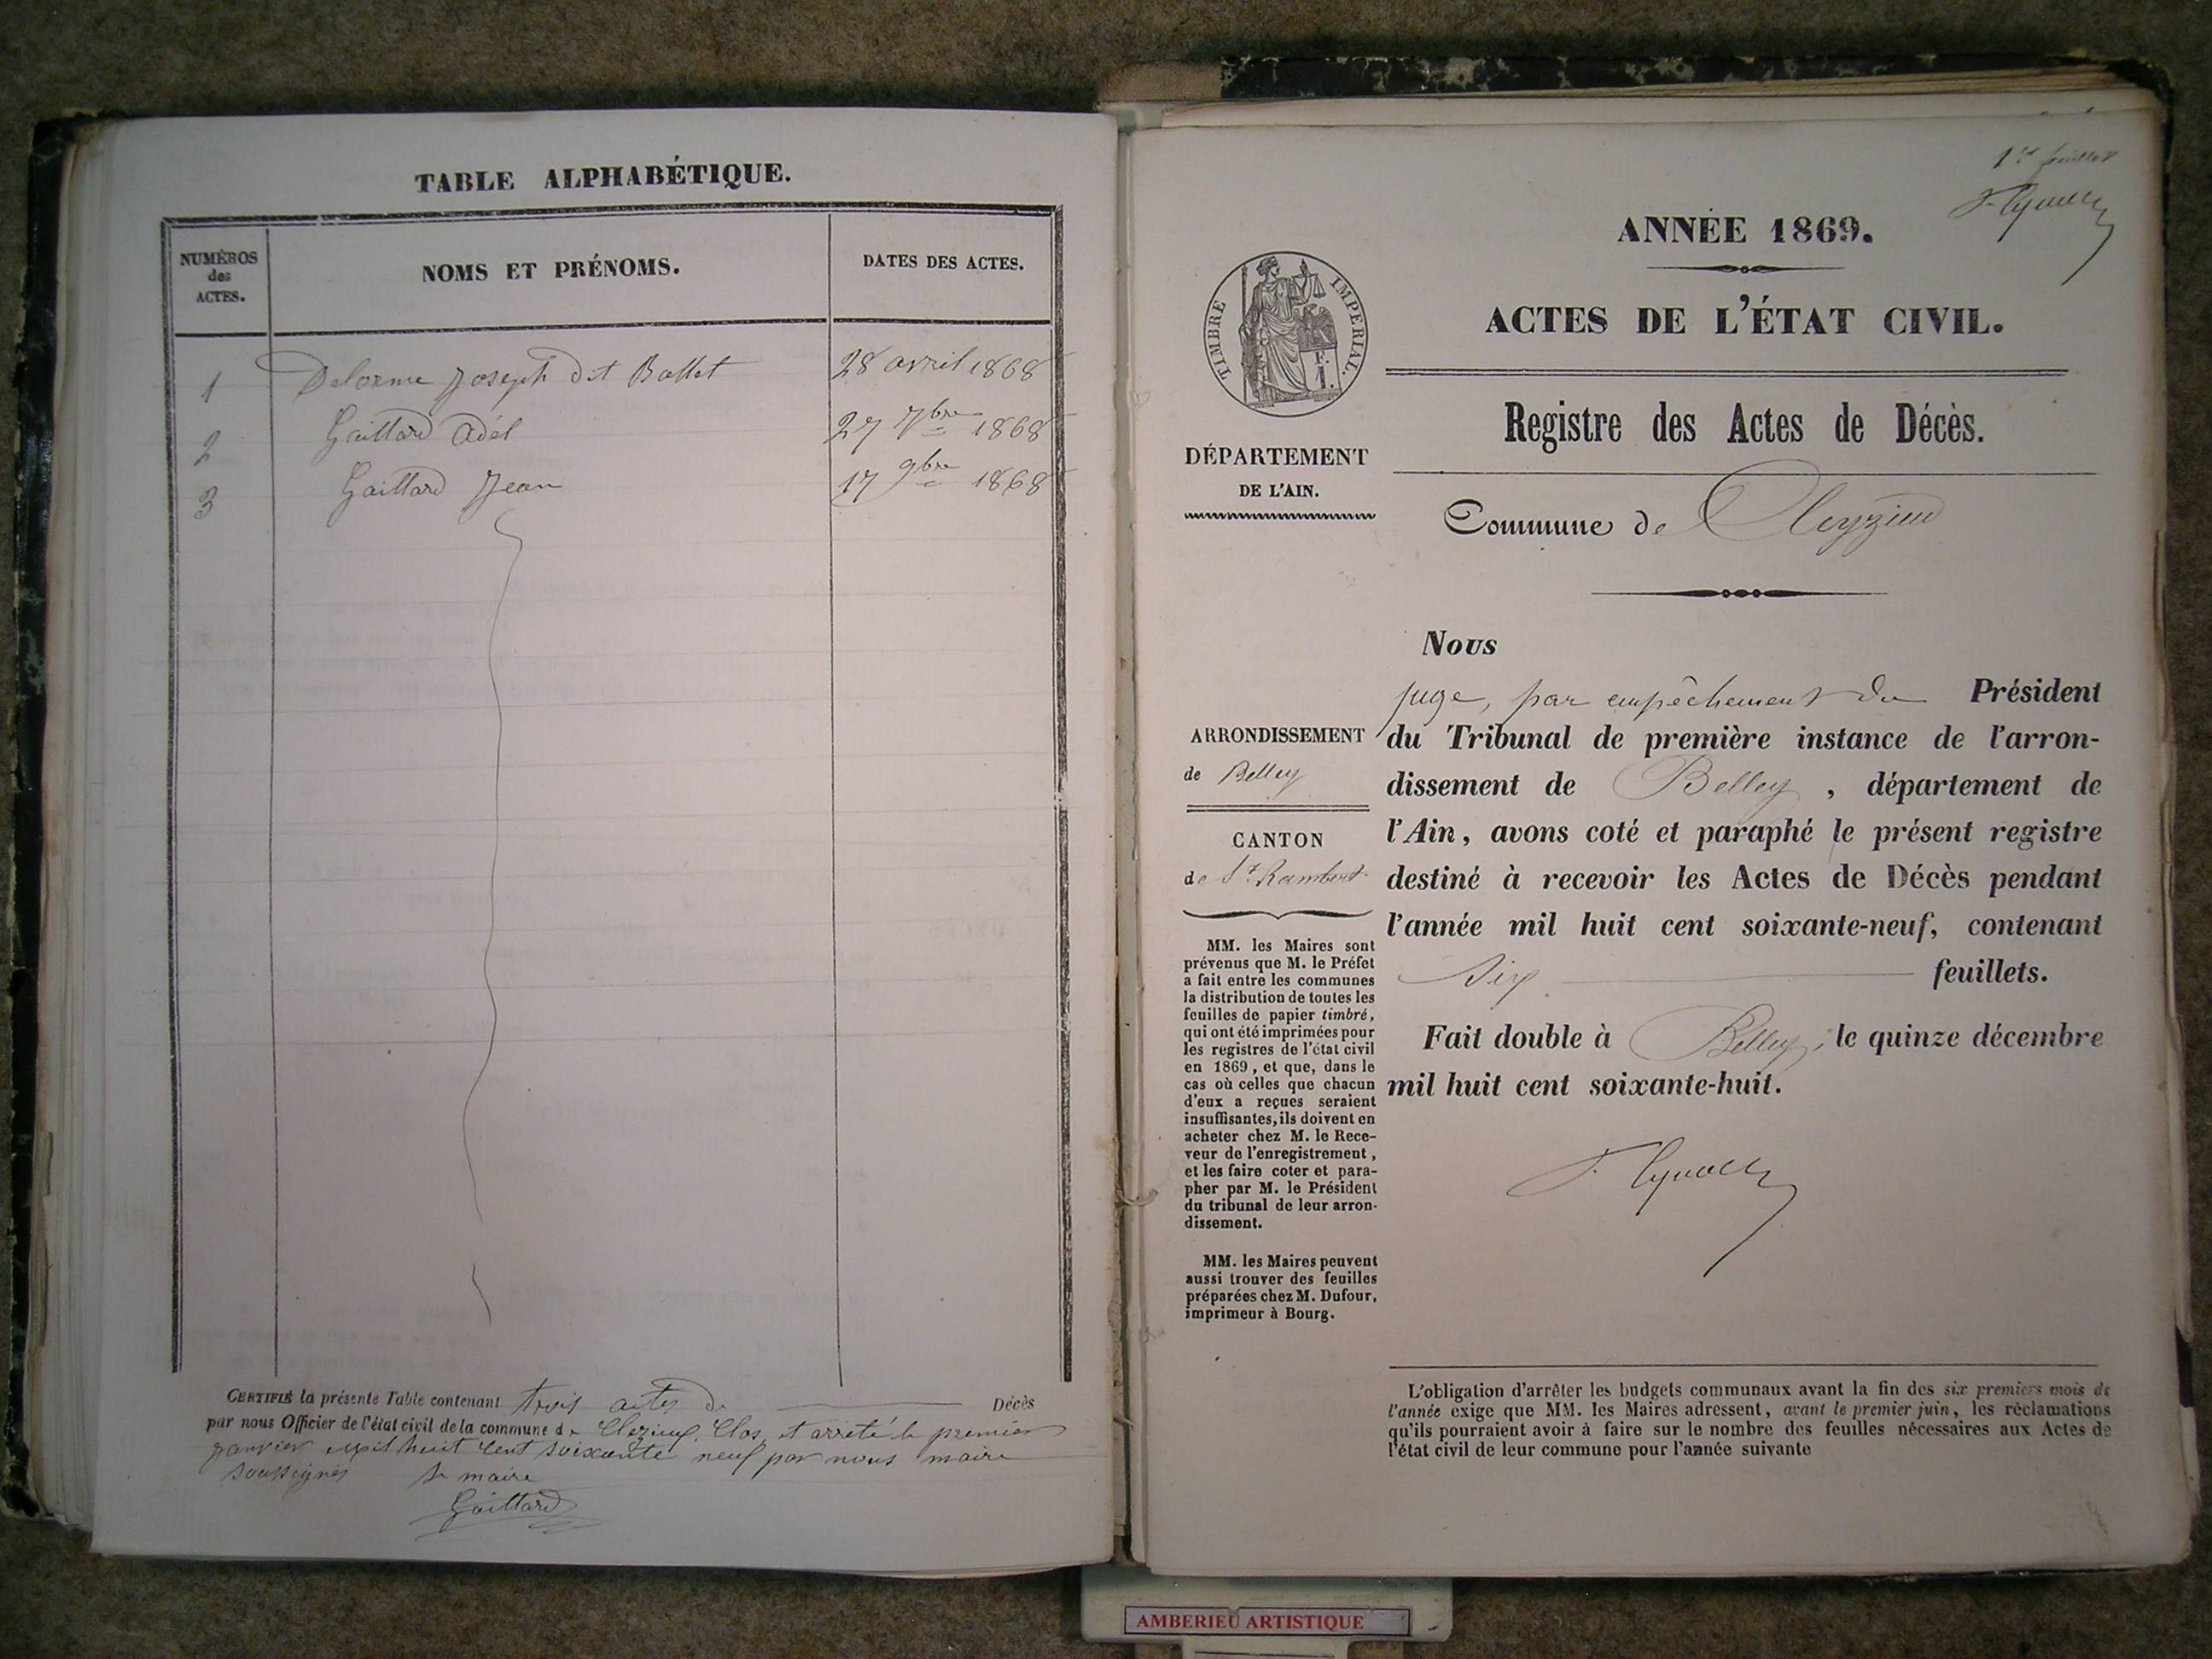 TABLE ALPHABÉTIQUE.
NUMÉROS
des
ACTES.
NOMS ET PRÉNOMS.
DATES DES ACTES.
1 Delorme Joseph dit Ballet 28 avril 1868
2 Gaillard Adèl 27 7bre 1868
3 Gaillard Jean 17 9bre 1868
CERTIFIÉ la présente Table contenant trois actes de Décès
par nous Officier de l'état civil de la commune de Clezieu. Clos et arrêté le premier
janvier mil huit cent soixante neuf par nous maire
soussignés le maire
Gaillard
1er feuillet
ANNÉE 1869.
ACTES DE L'ÉTAT CIVIL.
TIMBRE IMPERIAL.
DÉPARTEMENT
DE L'AIN.
Registre des Actes de Décès.
Commune de Cleyzieu
Nous
juge, par empêchement du Président
du Tribunal de première instance de l'arron-
dissement de Belley, département de
l'Ain, avons coté et paraphé le présent registre
destiné à recevoir les Actes de Décès pendant
l'année mil huit cent soixante-neuf, contenant
Six feuillets.
Fait double à Belley, le quinze décembre
mil huit cent soixante-huit.
ARRONDISSEMENT
de Belley
CANTON
de St Rambert
MM. les Maires sont
prévenus que M. le Préfet
a fait entre les communes
la distribution de toutes les
feuilles de papier timbré,
qui ont été imprimées pour
les registres de l'état civil
en 1869, et que, dans le
cas où celles que chacun
d'eux a reçues seraient
insuffisantes, ils doivent en
acheter chez M. le Rece-
veur de l'enregistrement,
et les faire coter et para-
pher par M. le Président
du tribunal de leur arron-
dissement.
MM. les Maires peuvent
aussi trouver des feuilles
préparées chez M. Dufour,
imprimeur à Bourg.
L'obligation d'arrêter les budgets communaux avant la fin des six premiers mois de
l'année exige que MM. les Maires adressent, avant le premier juin, les réclamations
qu'ils pourraient avoir à faire sur le nombre des feuilles nécessaires aux Actes de
l'état civil de leur commune pour l'année suivante
AMBERIEU ARTISTIQUE